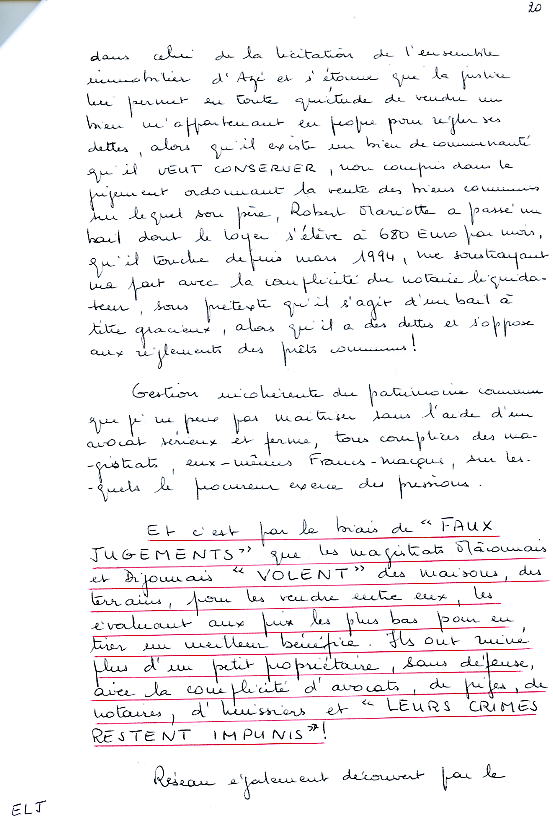 20
dans celui de la licitation de l'ensemble
immobilier d'Azé et s'étonne que la justice
lui permet en toute quiétude de vendre un
bien m'appartenant en propre pour régler ses
dettes, alors qu'il existe un bien de communauté
qu'il VEUT CONSERVER, non compris dans le
jugement ordonnant la vente des biens communs
sur lequel son père, Robert Mariotte a passé un
bail dont le loyer s'élève à 680 Euro par mois,
qu'il touche depuis mars 1994, me soustrayant
ma part avec la complicité du notaire liquida-
teur, sous prétexte qu'il s'agit d'un bail à
titre gracieux, alors qu'il a des dettes et s'oppose
aux règlements des prêts communs!
Gestion incohérente du patrimoine commun
que je ne peux pas maîtriser sans l'aide d'un
avocat sérieux et ferme, tous complices des ma-
-gistrats, eux-mêmes Francs-maçons, sur les-
-quels le procureur exerce des pressions.
Et c'est par le biais de "FAUX
JUGEMENTS" que les magistrats Mâconnais
et Dijonnais "VOLENT" des maisons, des
terrains, pour les vendre entre eux, les
évaluant aux prix les plus bas pour en
tirer un meilleur bénéfice. Ils ont ruiné
plus d'un petit propriétaire, sans défense,
avec la complicité d'avocats, de juges, de
notaires, d'huissiers et "LEURS CRIMES
RESTENT IMPUNIS"!
Réseau également découvert par le
ELJ